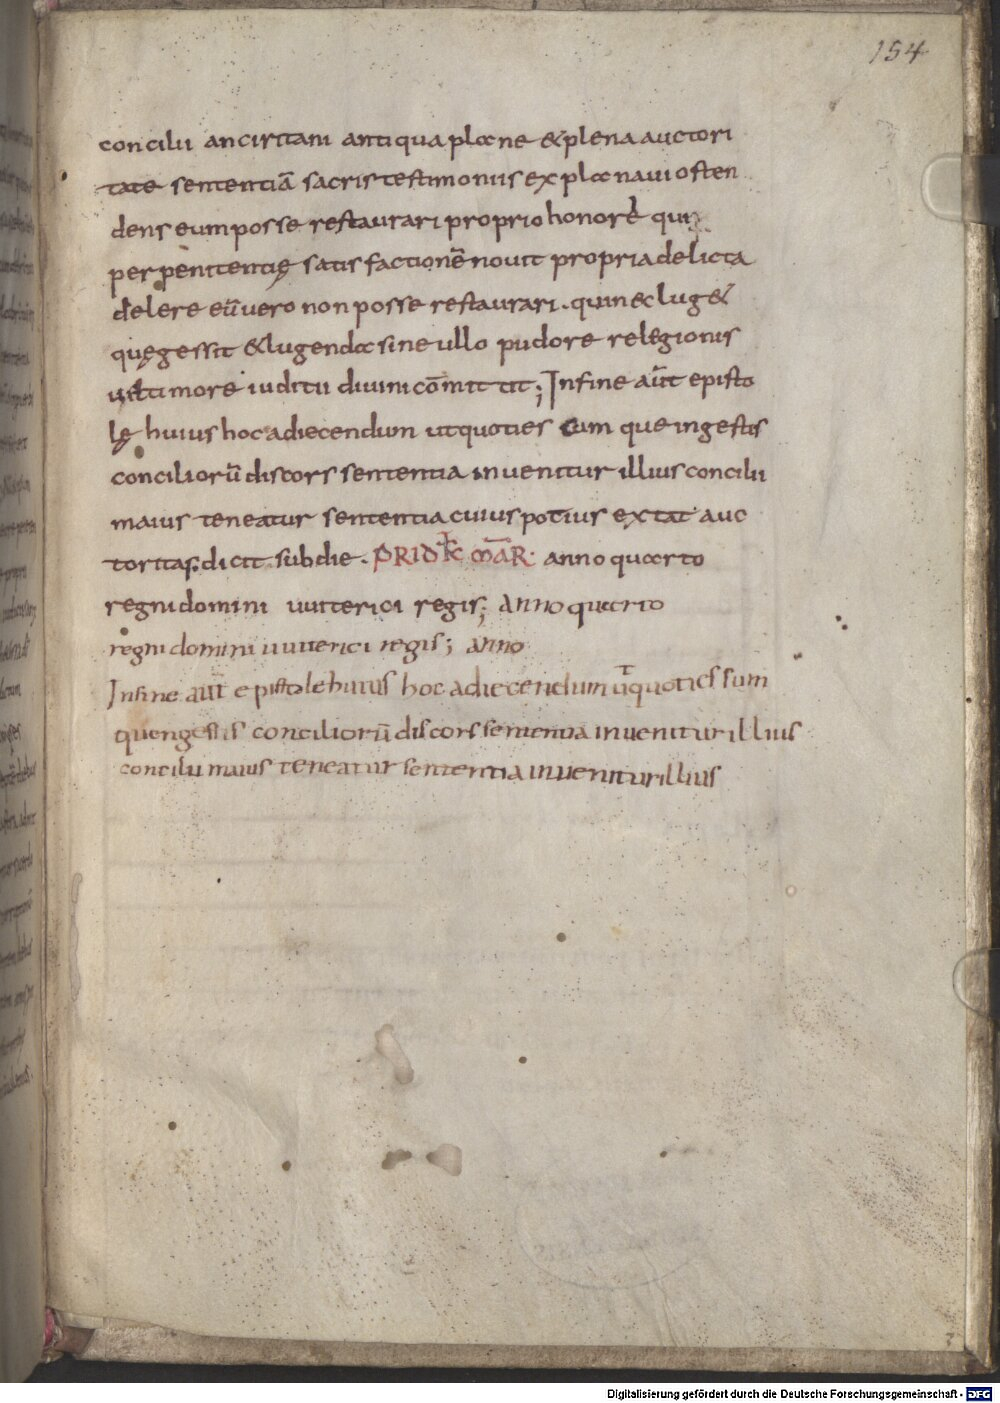 154
concilii anciritani antiqua plane & plena auctori
tate sententiā sacris testimoniis explanavi osten
dens eum posse restaurari proprio honore qui
per penitentię satis factionē novit propria delicta
delere eū vero non posse restaurari. quin & lug&
quę gessit & lugenda sine ullo pudore relegionis
ultimore iuditii divini cōmittit; In fine aūt episto
lę huius hoc adiecendum ut quoties cum que ingestis
conciliorū discors sententia invenitur illius concilii
maius teneatur sententia cuius potius extat auc
toritas. dicit sub die. PRID KL MAR anno quarto
regni domini uuiterici regis; anno quarto
regni domini uuiterici regis; anno
In fine aūt epistole huius hoc adiecendum ut quoties sum
quengestis conciliorū discors sententia invenitur illius
concilii maius teneatur sententia invenitur illius
Digitalisierung gefördert durch die Deutsche Forschungsgemeinschaft - DFG